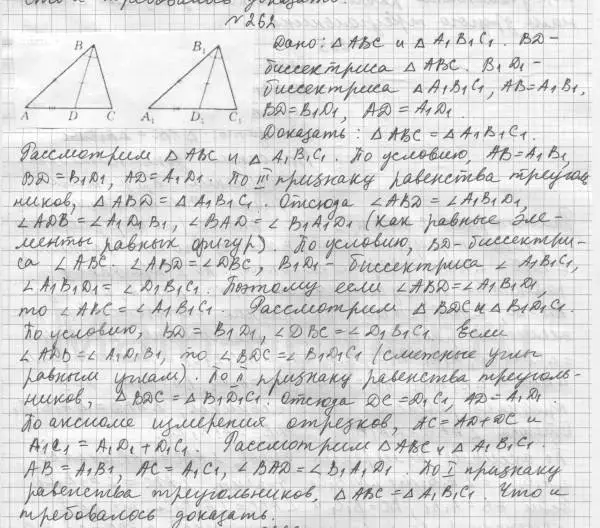 что и требовалось доказать.
№262
B
B₁
A D C A₁ D₁ C₁
Дано: △ABC и △A₁B₁C₁. BD-
биссектриса △ABC. B₁D₁-
биссектриса △A₁B₁C₁, AB=A₁B₁,
BD=B₁D₁, AD=A₁D₁.
Доказать: △ABC=△A₁B₁C₁.
Рассмотрим △ABC и △A₁B₁C₁. По условию, AB=A₁B₁,
BD=B₁D₁, AD=A₁D₁. По III признаку равенства треуголь
ников, △ABD=△A₁B₁D₁. Отсюда ∠ABD=∠A₁B₁D₁,
∠ADB=∠A₁D₁B₁, ∠BAD=∠B₁A₁D₁ (как равные эле-
менты равных фигур). По условию, BD-биссектри-
са ∠ABC. ∠ABD=∠DBC, B₁D₁- биссектриса ∠A₁B₁C₁,
∠A₁B₁D₁=∠D₁B₁C₁. Поэтому если ∠ABD=∠A₁B₁D₁,
то ∠ABC=∠A₁B₁C₁. Рассмотрим △BDC и △B₁D₁C₁.
По условию, BD=B₁D₁, ∠DBC=∠D₁B₁C₁. Если
∠ADB=∠A₁D₁B₁, то ∠BDC=∠B₁D₁C₁ (смежные углы
равным углам). По II признаку равенства треуголь-
ников, △BDC=△B₁D₁C₁. Отсюда DC=D₁C₁, AD=A₁D₁.
По аксиоме измерения отрезков, AC=AD+DC и
A₁C₁=A₁D₁+D₁C₁. Рассмотрим △ABC и △A₁B₁C₁.
AB=A₁B₁, AC=A₁C₁, ∠BAD=∠B₁A₁D₁. По I признаку
равенства треугольников, △ABC=△A₁B₁C₁. Что и
требовалось доказать.